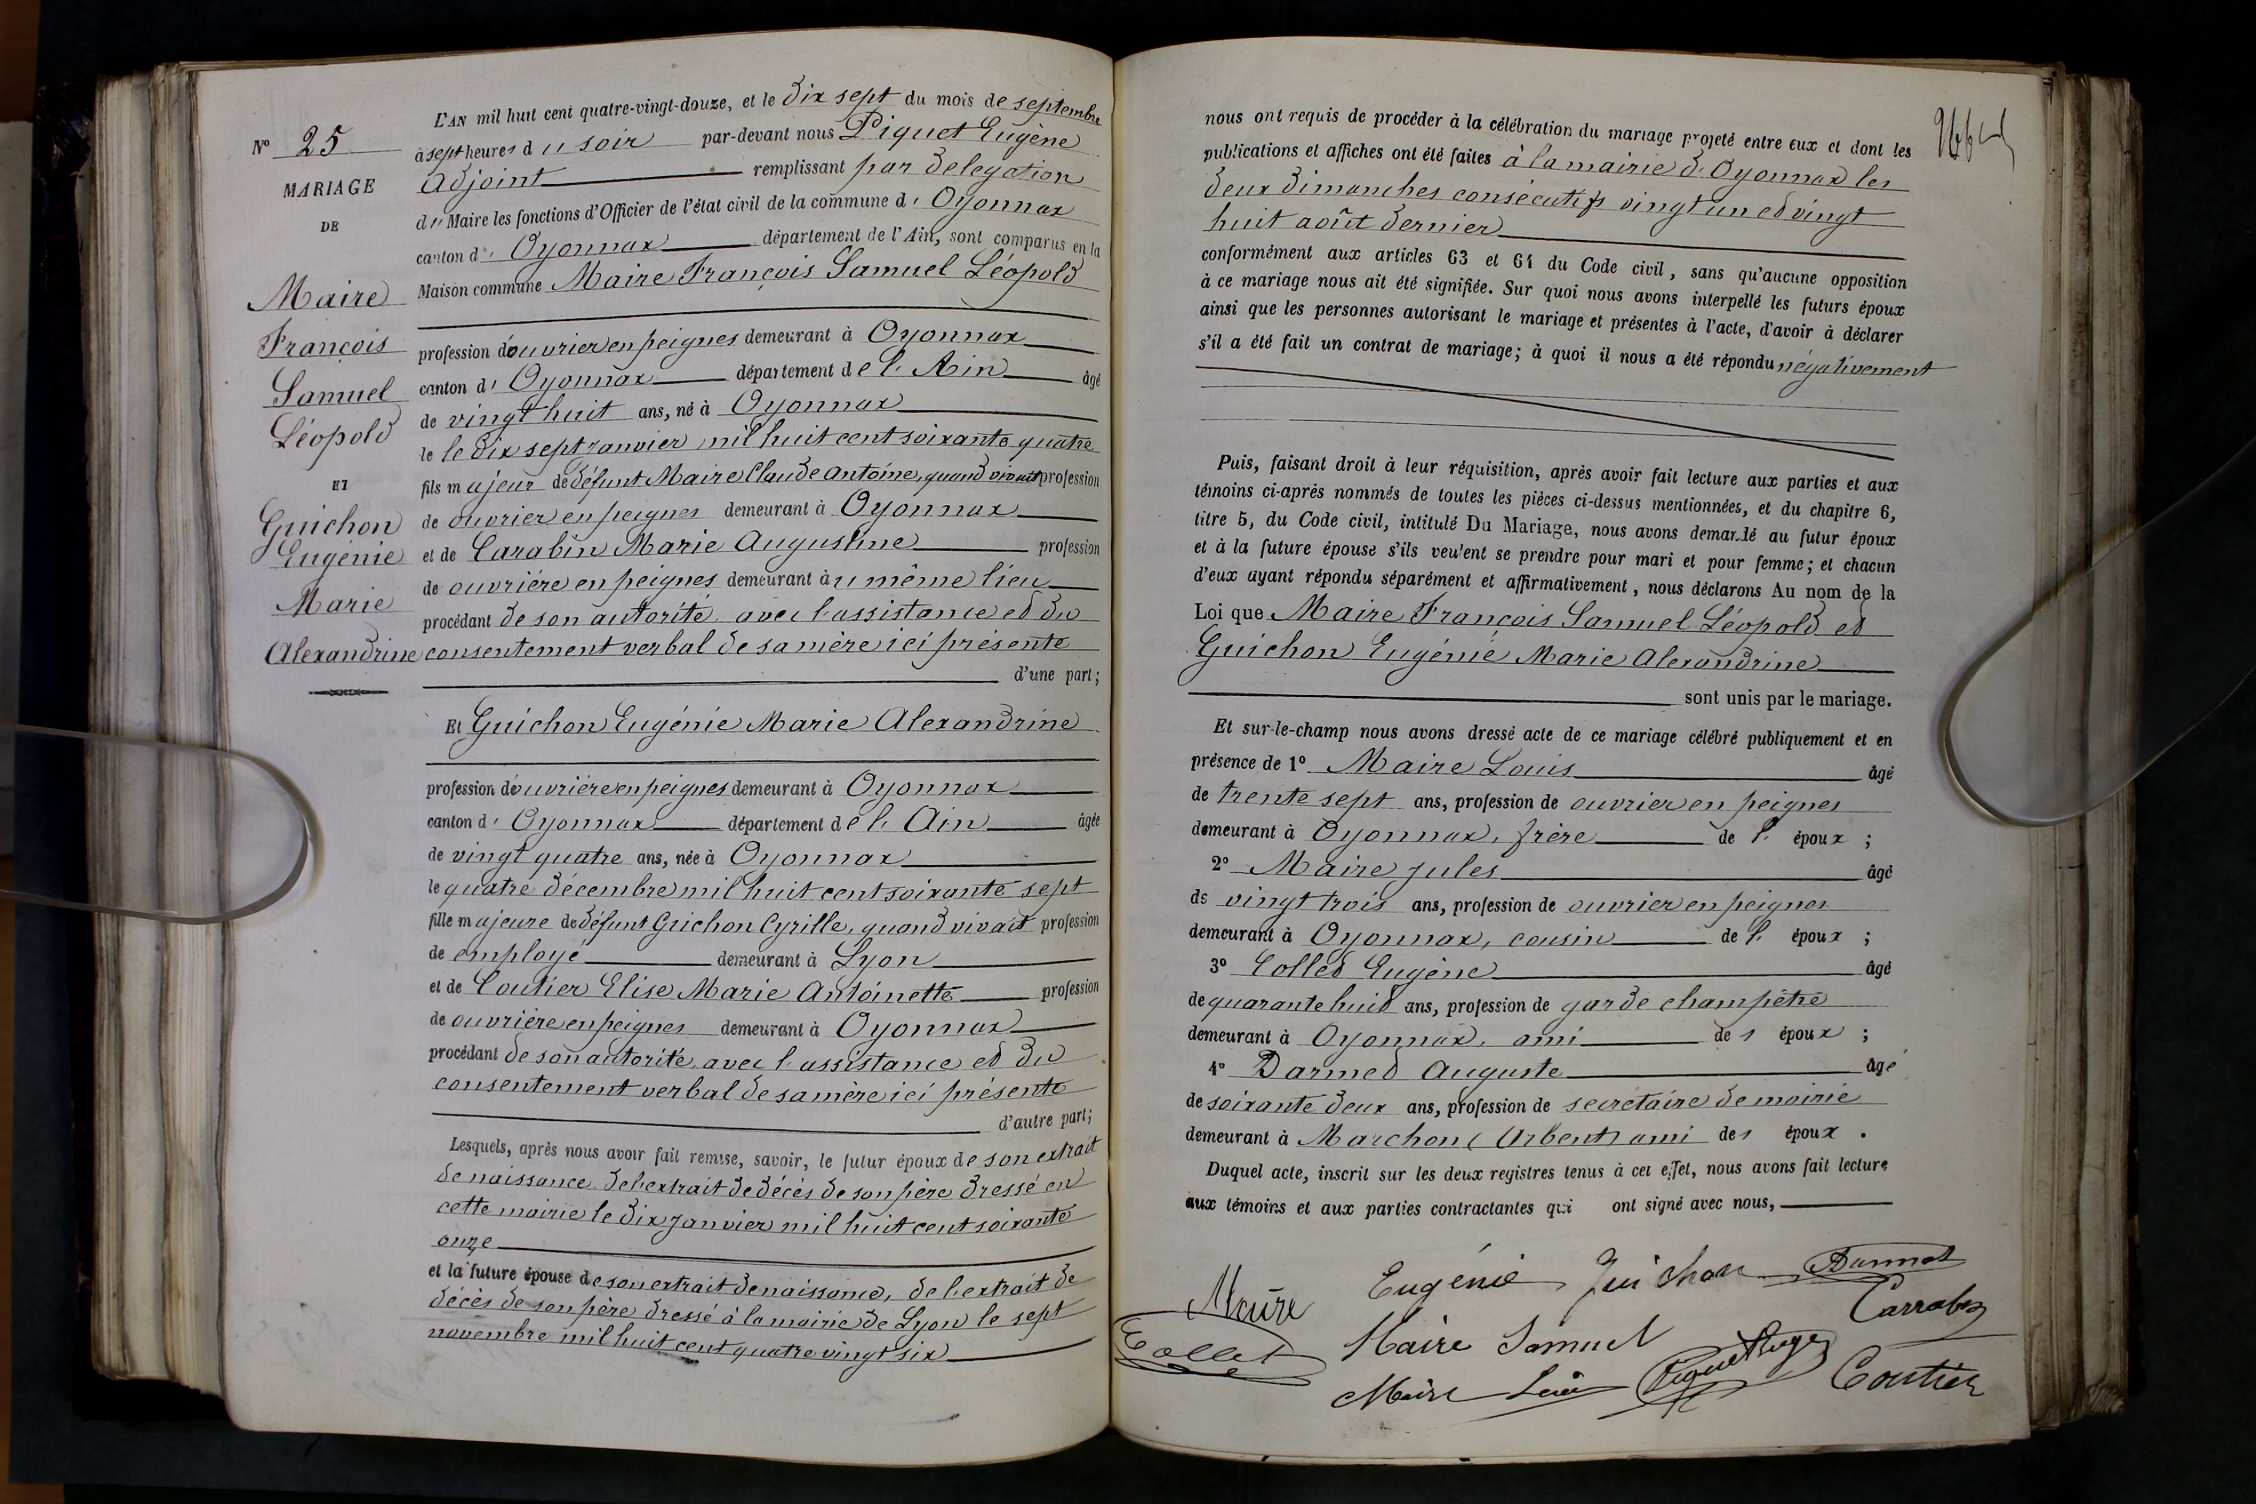 L'AN mil huit cent quatre-vingt-douze, et le dix sept du mois de septembre
à sept heures du soir par-devant nous Piquet Eugène
Adjoint remplissant par délegation
du Maire les fonctions d'Officier de l'état civil de la commune d' Oyonnax
canton d' Oyonnax département de l'Ain, sont comparus en la
Maison commune Maire François Samuel Léopold
profession d'ouvrier en peignes demeurant à Oyonnax
canton d' Oyonnax département de l'Ain âgé
de vingt huit ans, né à Oyonnax
le le dix sept janvier mil huit cent soixante quatre
fils majeur de défunt Maire Claude Antoine, quand vivait profession
de ouvrier en peignes demeurant à Oyonnax
et de Carabin Marie Augustine profession
de ouvrière en peignes demeurant au même lieu
procédant de son autorité avec l'assistance et du
consentement verbal de sa mère ici présente
d'une part;
Et Guichon Eugénie Marie Alexandrine
profession d'ouvrière en peignes demeurant à Oyonnax
canton d' Oyonnax département de l'Ain âgée
de vingt quatre ans, née à Oyonnax
le quatre décembre mil huit cent soixante sept
fille majeure de défunt Guichon Cyrille, quand vivait profession
de employé demeurant à Lyon
et de Coutier Elise Marie Antoinette profession
de ouvrière en peignes demeurant à Oyonnax
procédant de son autorité avec l'assistance et du
consentement verbal de sa mère ici présente
d'autre part;
Lesquels, après nous avoir fait remise, savoir, le futur époux de son extrait
de naissance de l'extrait de décès de son père dressé en
cette mairie le dix janvier mil huit cent soixante
onze
et la future épouse de son extrait de naissance, de l'extrait de
décès de son père dressé à la mairie de Lyon le sept
novembre mil huit cent quatre vingt six
N° 25
MARIAGE
DE
Maire
François
Samuel
Léopold
ET
Guichon
Eugénie
Marie
Alexandrine
nous ont requis de procéder à la célébration du mariage projeté entre eux et dont les
publications et affiches ont été faites à la mairie d'Oyonnax les
deux dimanches consécutifs vingt un et vingt
huit août dernier
conformément aux articles 63 et 64 du Code civil, sans qu'aucune opposition
à ce mariage nous ait été signifiée. Sur quoi nous avons interpellé les futurs époux
ainsi que les personnes autorisant le mariage et présentes à l'acte, d'avoir à déclarer
s'il a été fait un contrat de mariage; à quoi il nous a été répondu négativement
Puis, faisant droit à leur réquisition, après avoir fait lecture aux parties et aux
témoins ci-après nommés de toutes les pièces ci-dessus mentionnées, et du chapitre 6,
titre 5, du Code civil, intitulé Du Mariage, nous avons demandé au futur époux
et à la future épouse s'ils veulent se prendre pour mari et pour femme; et chacun
d'eux ayant répondu séparément et affirmativement, nous déclarons Au nom de la
Loi que Maire François Samuel Léopold et
Guichon Eugénie Marie Alexandrine
sont unis par le mariage.
Et sur-le-champ nous avons dressé acte de ce mariage célébré publiquement et en
présence de 1° Maire Louis âgé
de trente sept ans, profession de ouvrier en peignes
demeurant à Oyonnax, frère de l' époux ;
2° Maire Jules âgé
de vingt trois ans, profession de ouvrier en peignes
demeurant à Oyonnax, cousin de l' époux ;
3° Collet Eugène âgé
de quarante huit ans, profession de garde champêtre
demeurant à Oyonnax, ami des époux ;
4° Darmet Auguste âgé
de soixante deux ans, profession de secrétaire de mairie
demeurant à Marchon (Arbent) ami des époux .
Duquel acte, inscrit sur les deux registres tenus à cet effet, nous avons fait lecture
aux témoins et aux parties contractantes qui ont signé avec nous,
Eugénie Guichon Darmet
Maire Carrabin
Collet Maire Samuel
Maire Louis Piquet Eug Coutier